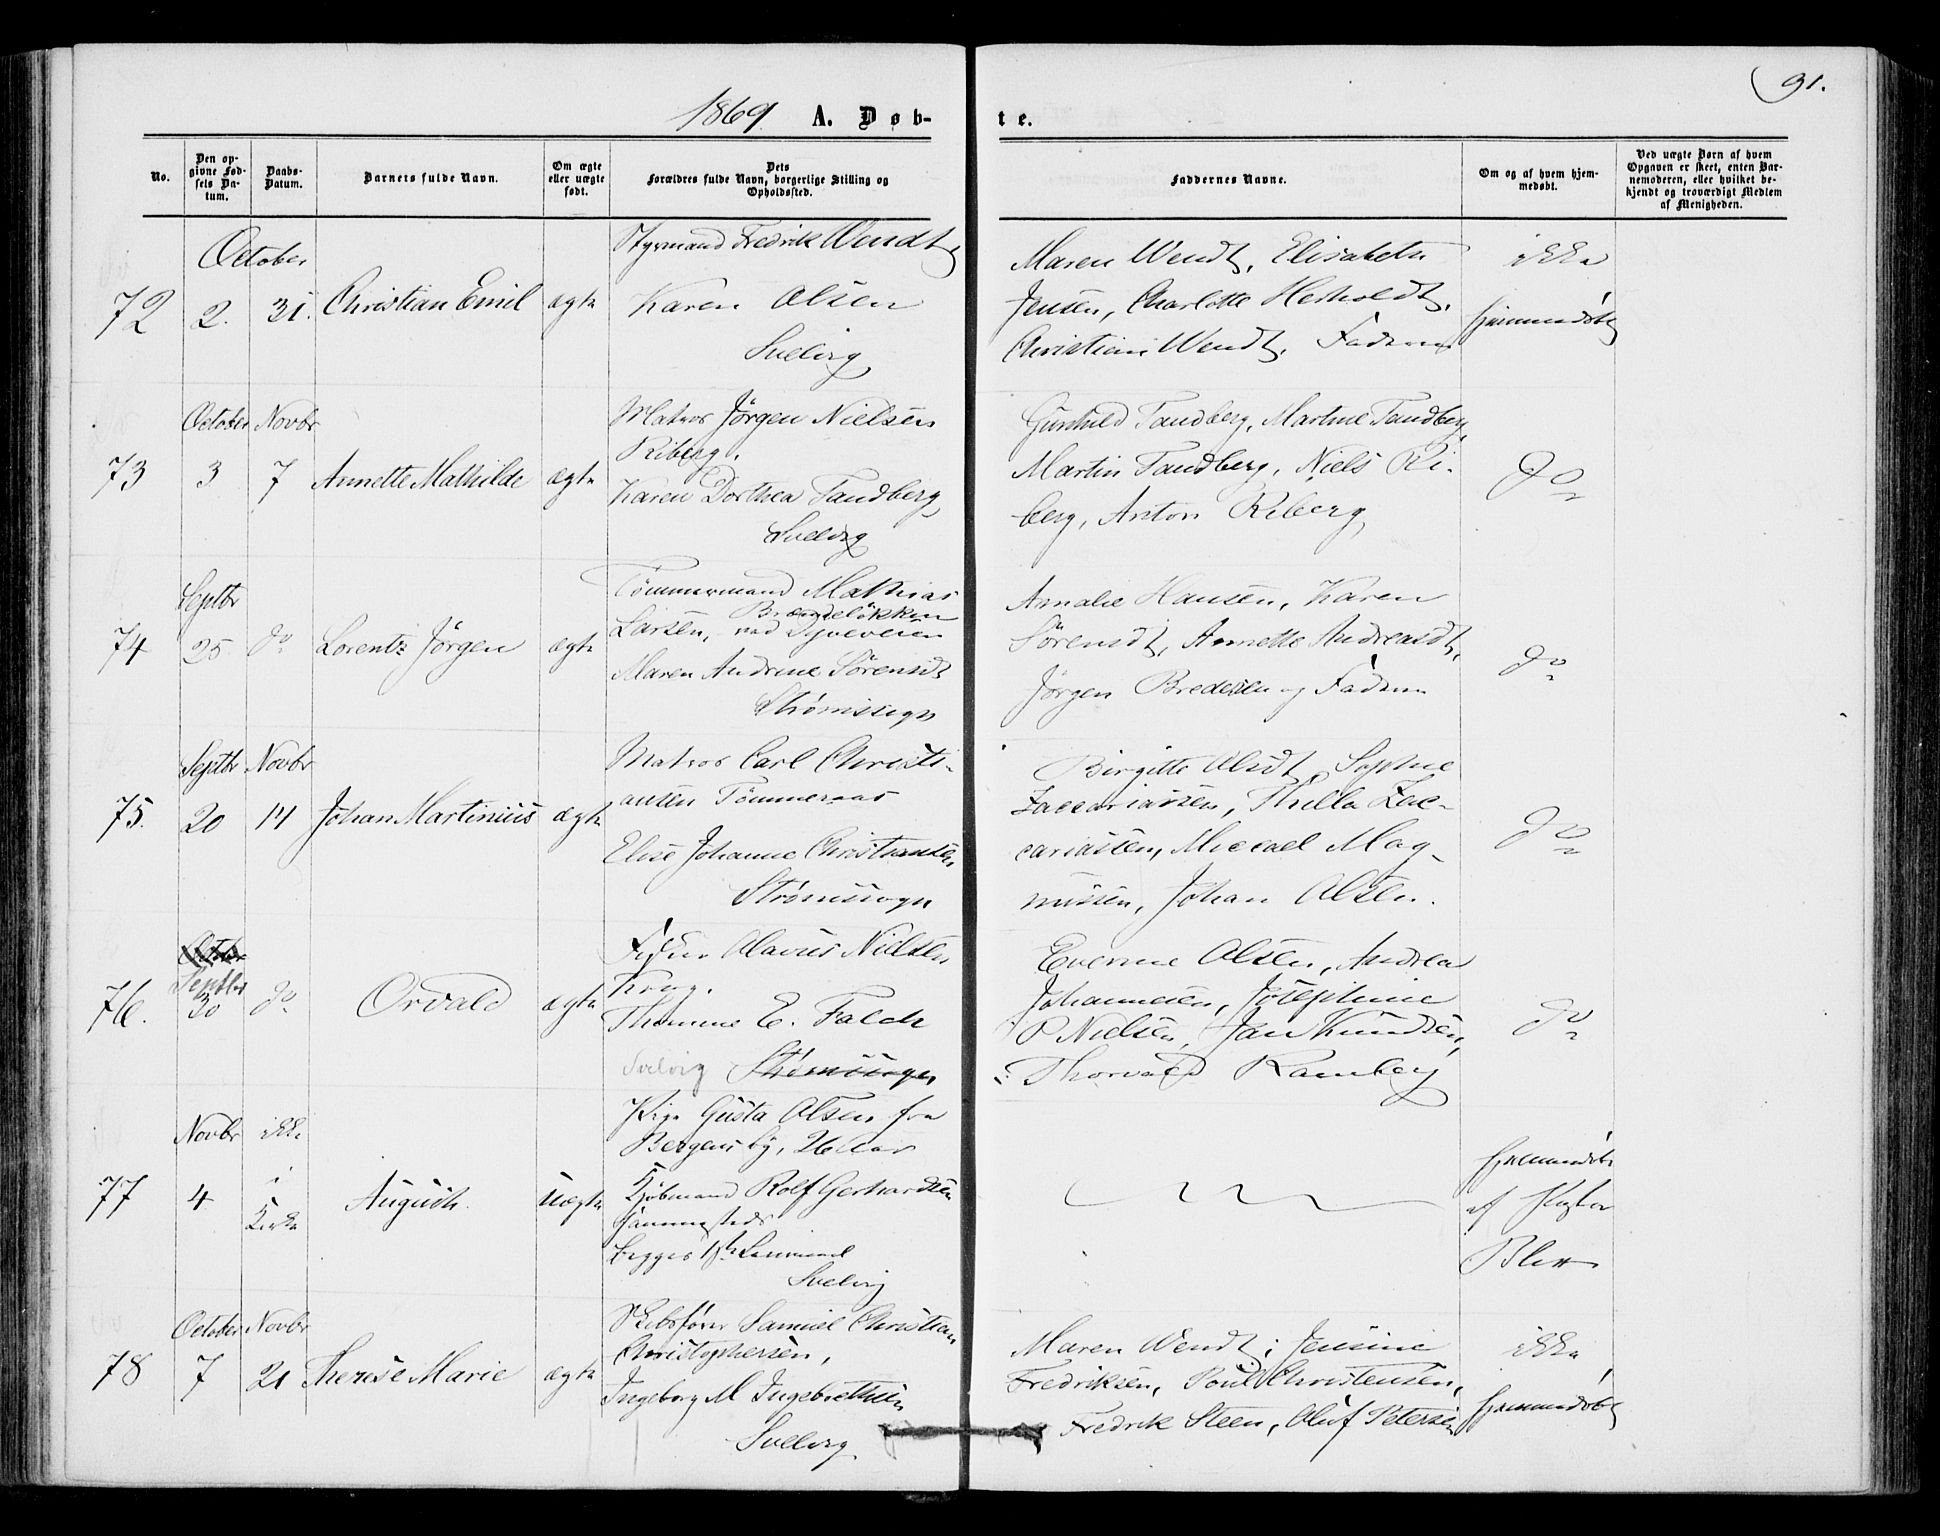 91.
1869 A. Døb-te.
No.
Den opgivne Fødsels Datum.
Daabs-Datum.
Barnets fulde Navn.
Om ægte eller uægte født.
Dets Forældres fulde Navn, borgerlige Stilling og Opholdssted.
Faddernes Navne.
Om og af hvem hjemmedøbt.
Ved uægte Børn af hvem Opgaven er skeet, enten Barnemoderen, eller hvilket bekjendt og troværdigt Medlem af Menigheden.
October
72 2. 31. Christian Emil ægte
Styrmand Fredrik Wendt
Karen Olsen
Svelvig
Maren Wendt, Elisabeth
Jensen, Charlotte Herholdt,
Christian Wendt, Faderen
ikke
hjemmedøbt
October Novbr
73 3 7 Annette Mathilde ægte
Matros Jörgen Nielsen
Riberg.
Karen Dorthea Tandberg
Svelvig
Gunhild Tandberg, Martine Tandberg,
Martin Tandberg, Niels Ri-
berg, Anton Riberg
do
Septbr
74 25 do Lorentz Jörgen ægte
Tömmermand Mathias
Brændelökken
Larsen, ved
Maren Andrine Sörensdt
Strömssogn
Amalie Hansen, Karen
Sörensdt, Annette Andreasdt,
Jörgen Bredesen og Faderen
do
Septbr Novbr
75. 20 14 Johan Martinius ægte
Matros Carl Christi-
ansen Tömmeraas
Elise Johanne Christiansen
Strömssogn
Birgitte Olsdt, Sophie
Zaccariassen, Thilla Zac-
cariassen, Miccael Mag-
nussen, Johan Olsen.
do
Octbr
Septbr
76. 30 do Orvald ægte
Fisker Olavus Nielsen
Krog.
Thomine E. Falch
Svelvig Strömssogn
Evenne Olsen, Andrea
Johannesen, Josephine
P Nielsen, Jan Knudsen,
Thorvald Ramberg
do
Novbr ikke
77 4 i Kirke August. uægte
Pige Gusta Olsen fra
Bergens by, 26 Aar
Kjöbmand Rolf Gerhardsen
sammesteds
begges 1ste Leiermaal
Svelvig
hjemmedöbt
af
October Novbr
78 7 21 Therese Marie ægte
Skibsförer Samuel Christian
Christophersen,
Ingeborg M Ingebretsen
Svelvig
Maren Wendt, Jensine
Fredriksen, Poul Christensen,
Fredrik Steen, Oluf Petersen
ikke
hjemmedöbt